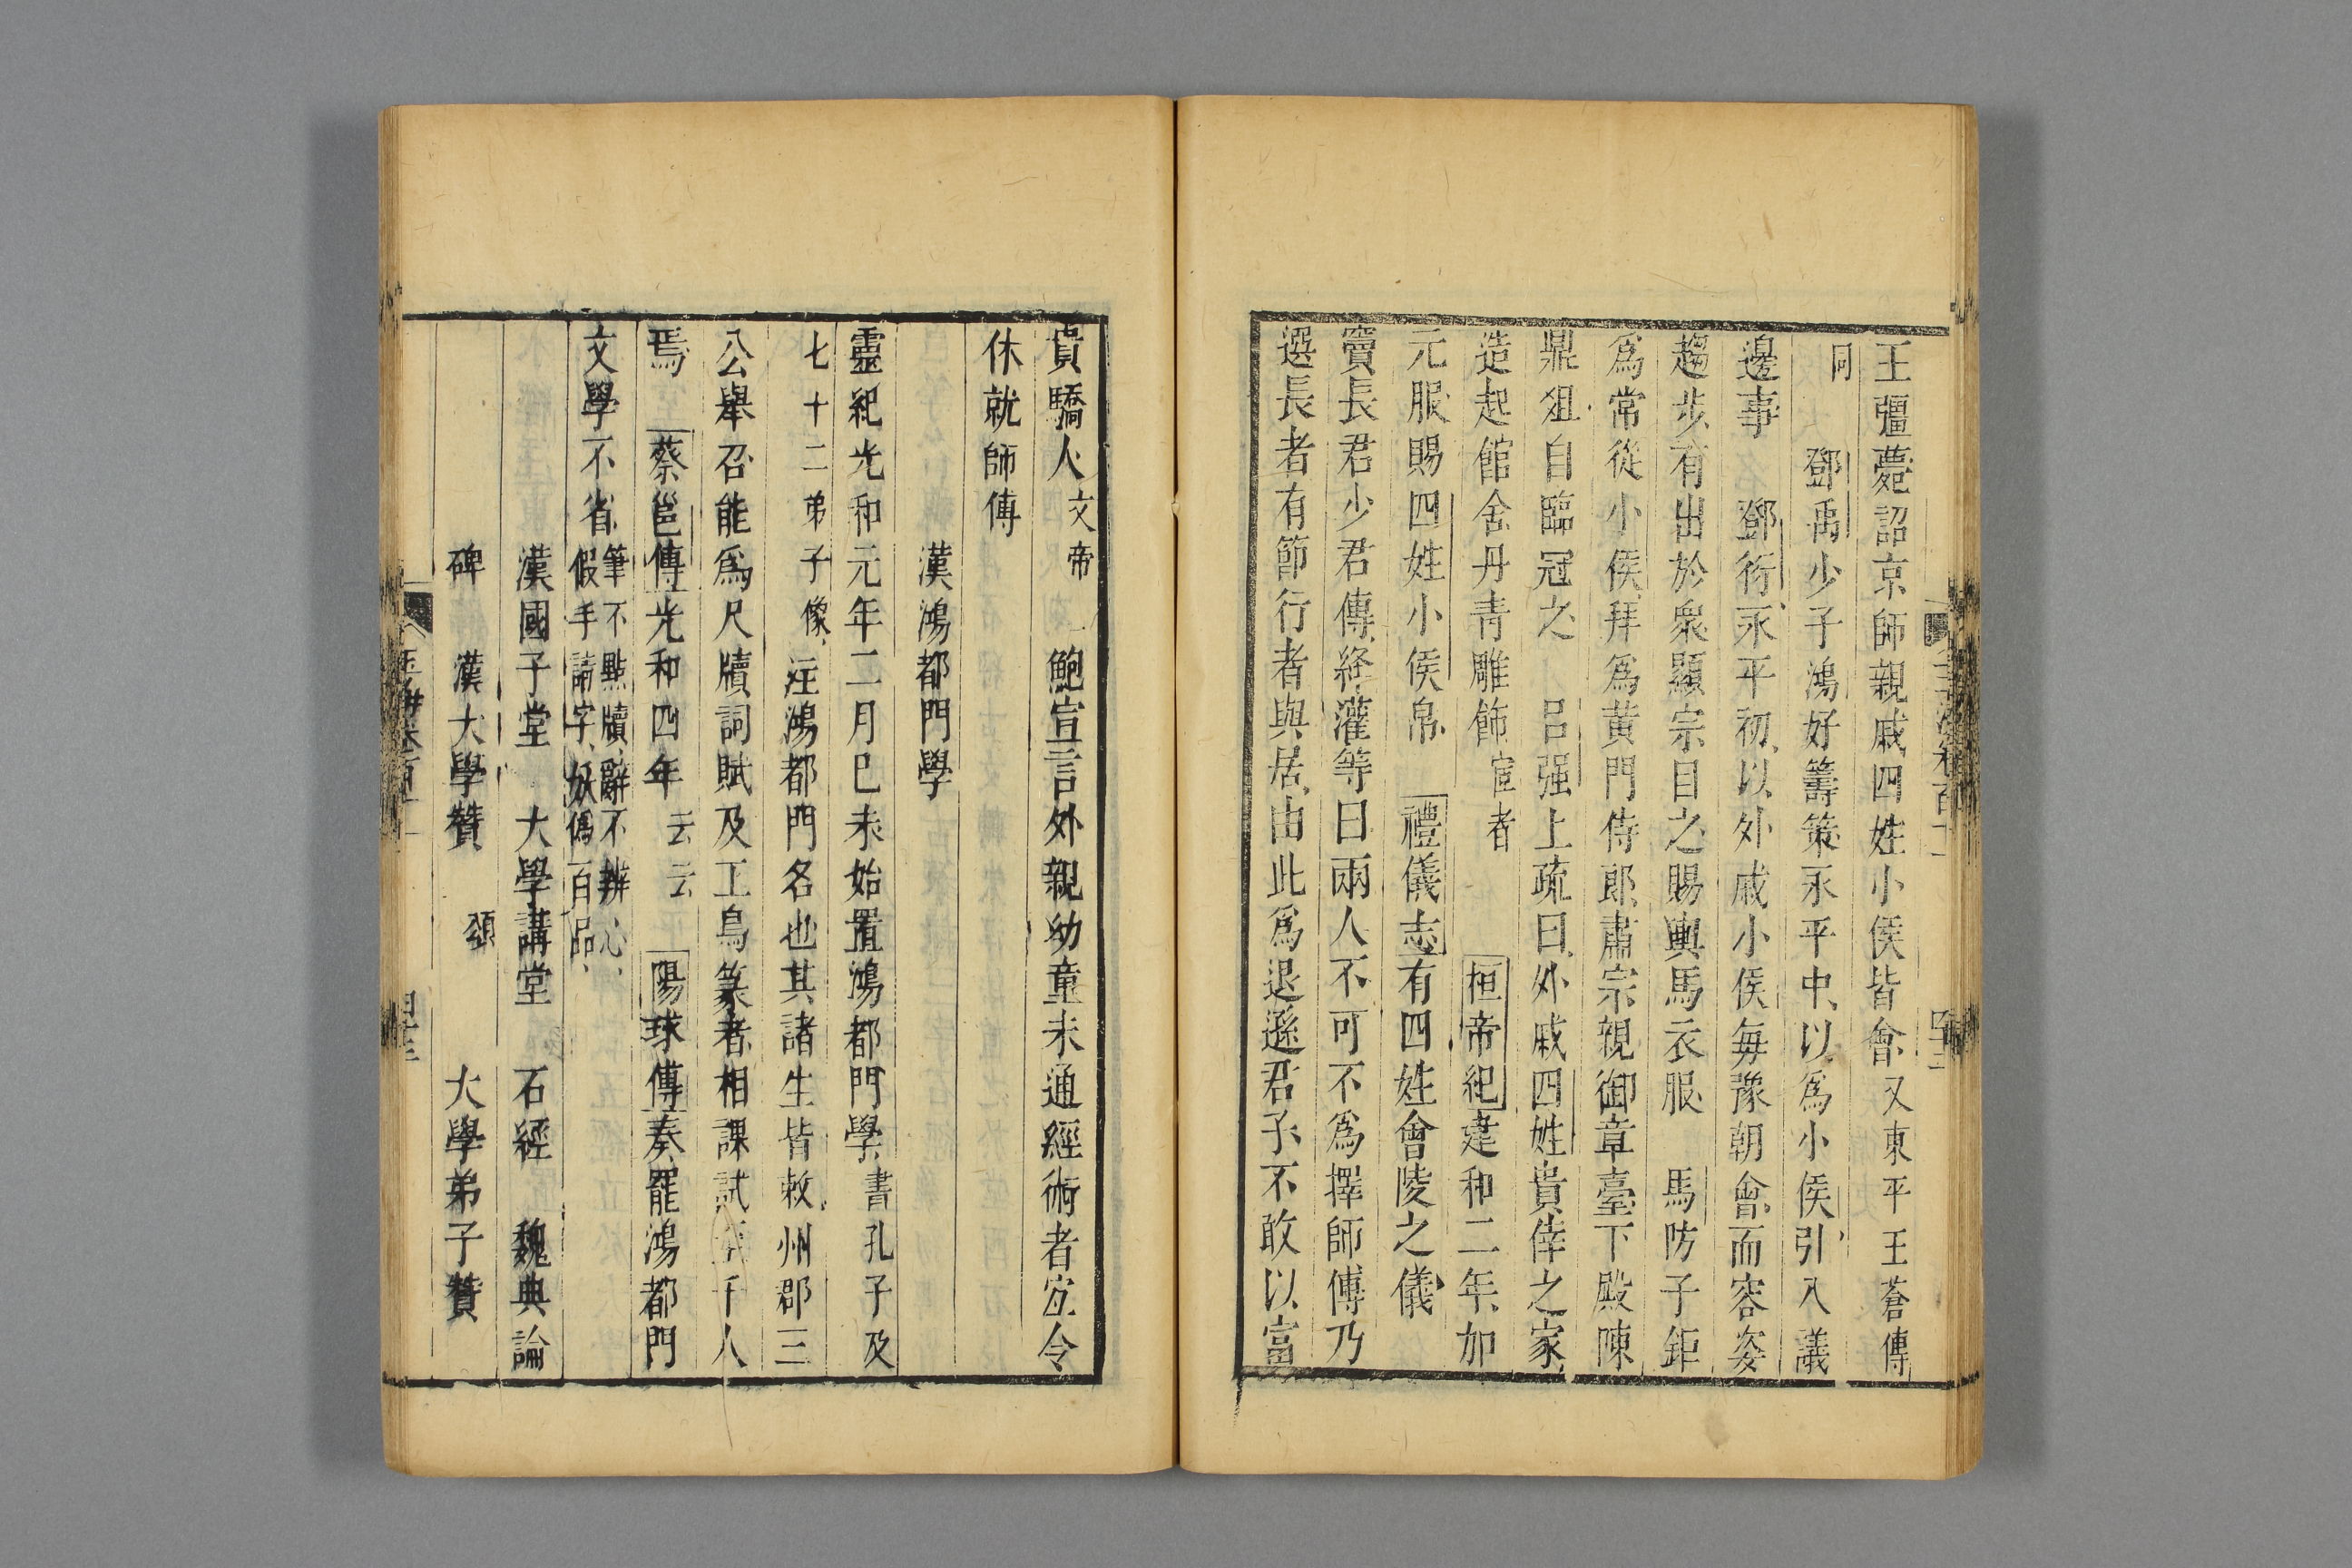 王彊薨詔京師親戚四姓小侯皆會又東平王蒼傳
同　鄧禹少子鴻好籌策永平中以爲小侯引入議
邊事　鄧衍永平初以外戚小侯每豫朝會而容姿
趨步有出於衆顯宗目之賜輿馬衣服　馬防子鉅
爲常從小侯拜爲黃門侍郎肅宗親御章臺下殿陳
鼎俎自臨冠之　呂强上疏曰外戚四姓貴倖之家
造起館舍丹青雕飾宦者　桓帝紀建和二年加
元服賜四姓小侯帛　禮儀志有四姓會陵之儀
竇長君少君傳絳灌等曰兩人不可不爲擇師傅乃
選長者有節行者與居由此爲退遜君子不敢以富
貴驕人文帝　鮑宣言外親幼童未通經術者宜令
休就師傅
漢鴻都門學
靈紀光和元年二月己未始置鴻都門學書孔子及
七十二弟子像注鴻都門名也其諸生皆敕州郡三
公舉召能爲尺牘詞賦及工鳥篆者相課試至千人
焉　蔡邕傳光和四年云云　陽球傳奏罷鴻都門
文學不省筆不點牘辭不辨心
假手請字妖僞百品
漢國子堂　大學講堂　石經　魏典論
碑　漢大學贊　頌　大學弟子贊